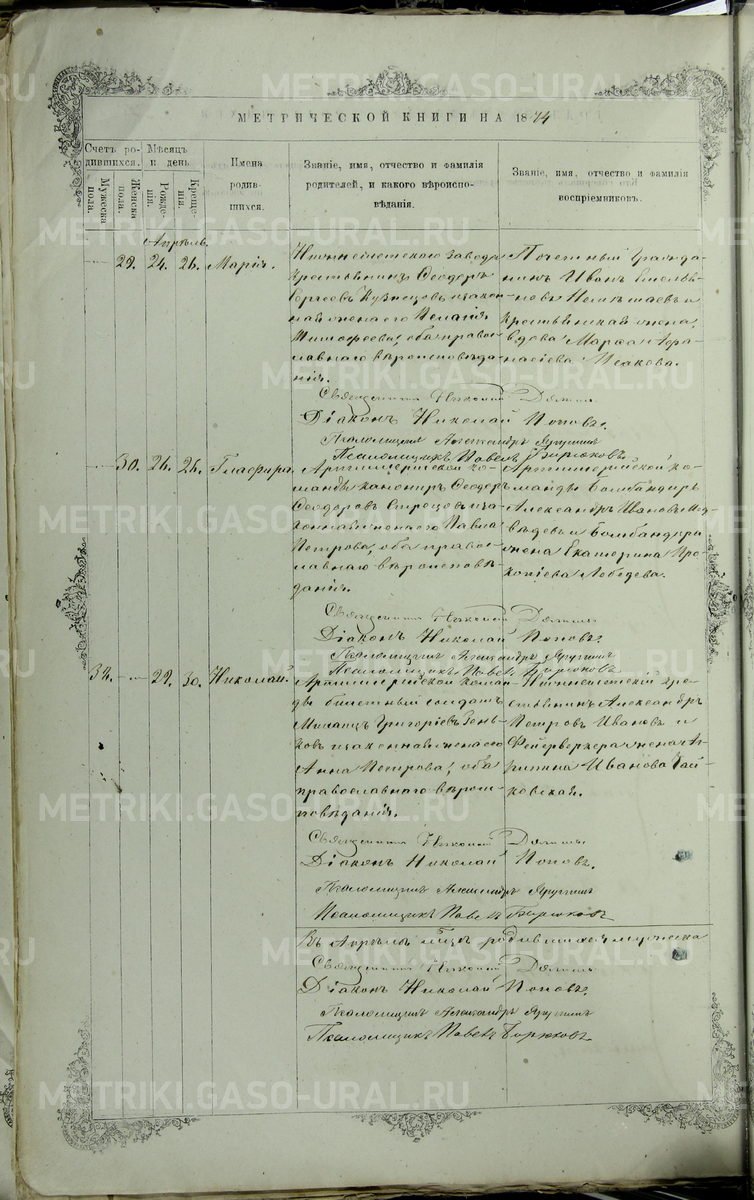 МЕТРИЧЕСКОЙ КНИГИ НА 1874
Счетъ ро-
дившихся.
Мужеска
пола.
Женска
пола.
Мѣсяцъ
и день.
Рожде-
нія.
Креще-
нія.
Имена
родив-
шихся.
Званіе, имя, отчество и фамилія
родителей, и какого вѣроиспо-
вѣданія.
Званіе, имя, отчество и фамилія
воспріемниковъ.
Апрѣль.
29. 24. 26. Марія.
завода
Крестьянинъ Ѳеодоръ
Кузнецовъ и закон-
ная жена его Пелагія
Тимофеева, оба право-
славнаго вѣроисповѣда-
нія.
Почетный Гражда-
нинъ Иванъ
и
Крестьянская жена,
вдова Марѳа Аѳа-
насіева
Священникъ Николай
Діаконъ Николай Поповъ.
Псаломщикъ Александръ
Псаломщикъ Павелъ Бирюковъ.
30. 26. 28. Глафира.
Артиллерійской ко-
манды канониръ Ѳеодоръ
Ѳеодоровъ Стрецовъ и за-
конная жена его Павла
Петрова, оба право-
славнаго вѣроисповѣ-
данія.
Артиллерійской ко-
манды Бомбандиръ
Александръ Ивановъ Мед-
вѣдевъ и Бомбандира
жена Екатерина Про-
копіева Лебедева.
Священникъ Николай
Діаконъ Николай Поповъ.
Псаломщикъ Александръ
Псаломщикъ Павелъ Бирюковъ
32. 29. 30. Николай.
Артиллерійской коман-
ды билетный солдатъ
Михаилъ Григоріевъ Зень-
ковъ и законная жена его
Анна Петрова, оба
православнаго вѣроис-
повѣданія.
кре-
стьянинъ Александръ
Петровъ Ивановъ и
Фейерверкера жена Аг-
рипина Иванова Чай-
ковская.
Священникъ Николай
Діаконъ Николай Поповъ.
Псаломщикъ Александръ
Псаломщикъ Павелъ Бирюковъ
Въ Апрѣлѣ м-цѣ родившихся мужеска
Священникъ Николай
Діаконъ Николай Поповъ.
Псаломщикъ Александръ
Псаломщикъ Павелъ Бирюковъ
METRIKI.GASO-URAL.RU